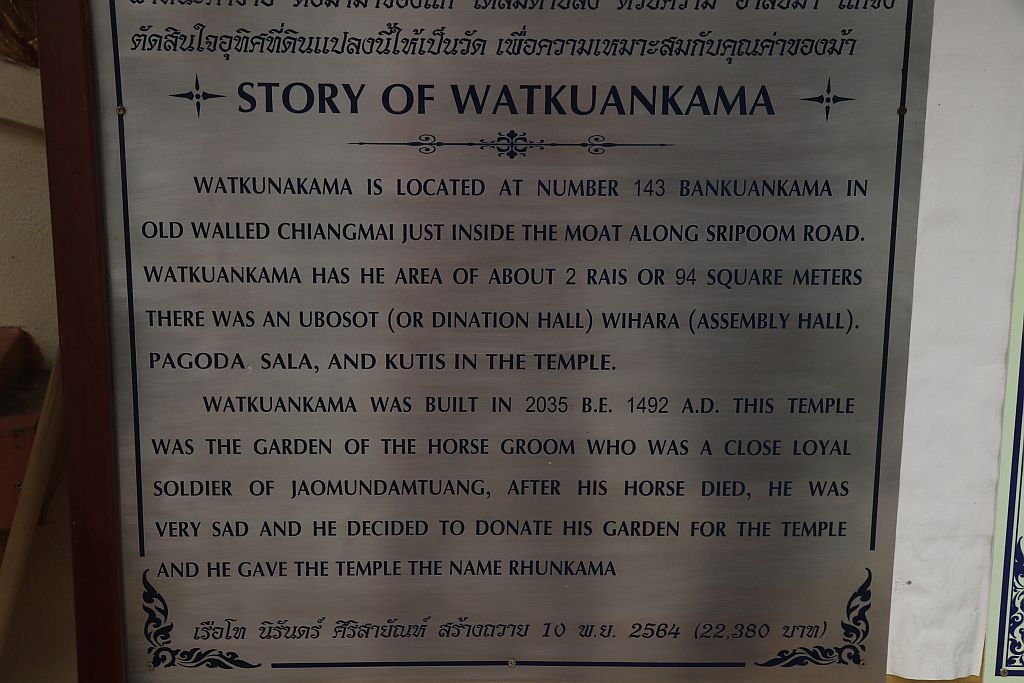 ตัดสินใจอุทิศที่ดินแปลงนี้ให้เป็นวัด เพื่อความเหมาะสมกับคุณค่าของม้า
STORY OF WATKUANKAMA
WATKUNAKAMA IS LOCATED AT NUMBER 143 BANKUANKAMA IN
OLD WALLED CHIANGMAI JUST INSIDE THE MOAT ALONG SRIPOOM ROAD.
WATKUANKAMA HAS HE AREA OF ABOUT 2 RAIS OR 94 SQUARE METERS
THERE WAS AN UBOSOT (OR DINATION HALL) WIHARA (ASSEMBLY HALL).
PAGODA, SALA, AND KUTIS IN THE TEMPLE.
WATKUANKAMA WAS BUILT IN 2035 B.E. 1492 A.D. THIS TEMPLE
WAS THE GARDEN OF THE HORSE GROOM WHO WAS A CLOSE LOYAL
SOLDIER OF JAOMUNDAMTUANG, AFTER HIS HORSE DIED, HE WAS
VERY SAD AND HE DECIDED TO DONATE HIS GARDEN FOR THE TEMPLE
AND HE GAVE THE TEMPLE THE NAME RHUNKAMA
เรือโท นิรันดร์ ศิริสายัณห์ สร้างถวาย 10 พ.ย. 2564 (22,380 บาท)